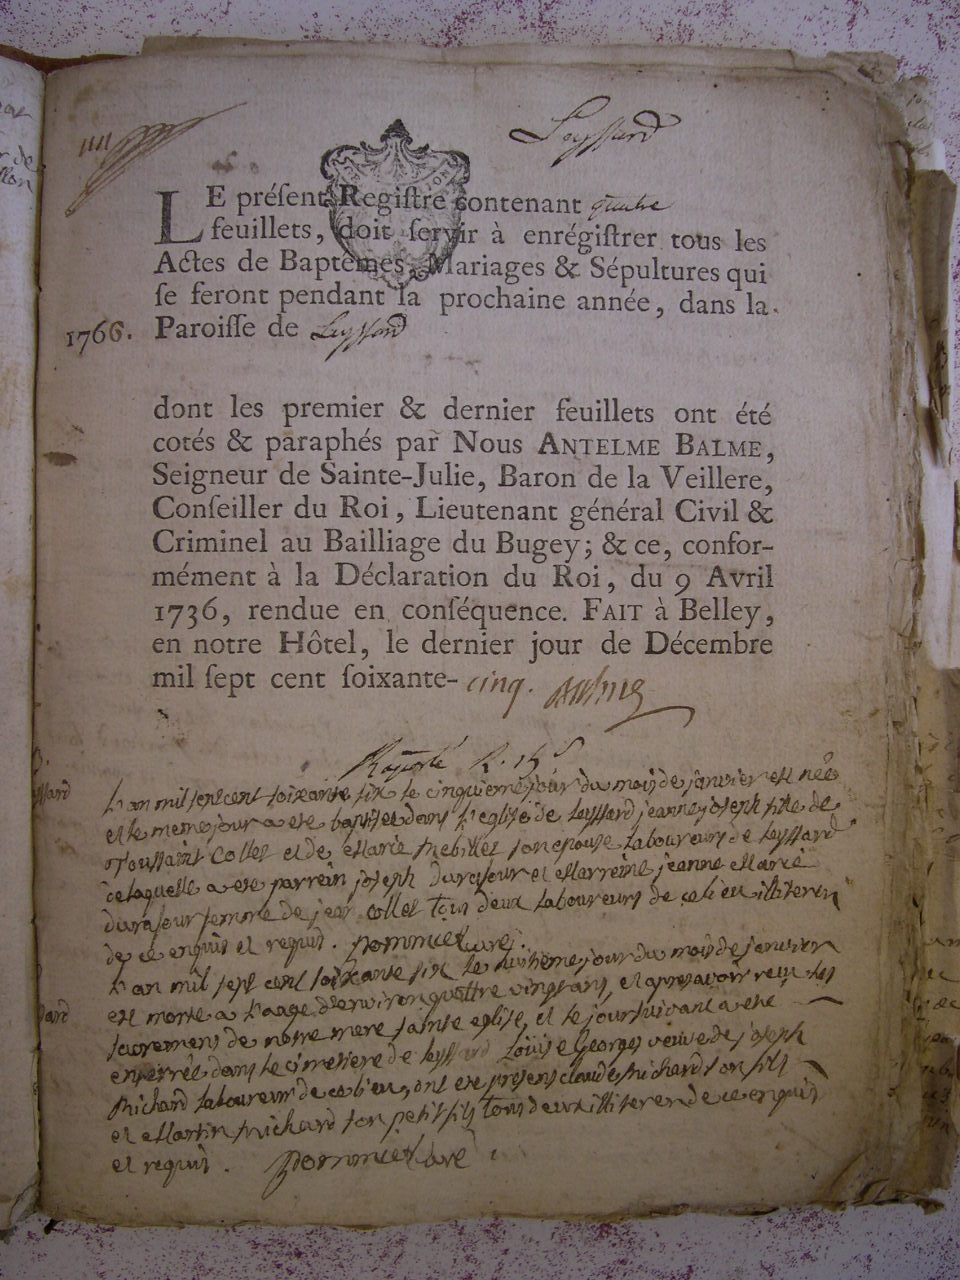 Leyssard
LE préſent Regiſtre contenant quatre
feuillets, doit ſervir à enrégiſtrer tous les
Actes de Baptêmes, Mariages & Sépultures qui
ſe feront pendant la prochaine année, dans la
1766. Paroiſſe de Leyssard
dont les premier & dernier feuillets ont été
cotés & paraphés par Nous ANTELME BALME,
Seigneur de Sainte-Julie, Baron de la Veillere,
Conſeiller du Roi, Lieutenant général Civil &
Criminel au Bailliage du Bugey; & ce, confor-
mément à la Déclaration du Roi, du 9 Avril
1736, rendue en conſéquence. FAIT à Belley,
en notre Hôtel, le dernier jour de Décembre
mil ſept cent ſoixante-cinq.
L'an mil sept cent soixante six le cinquieme jour du mois de janvier est née
et le meme jour a ete baptisée dans l'eglise de leyssard jeanne joseph fille de
Toussaint Collet et de Marie son epouse Laboureurs de leyssard
de laquelle a ete parrein joseph durafour et Marreine jeanne Marie
durafour femme de jean Collet tous deux Laboureurs de ce lieu illiteren
de ce enquis et requis. pommiet curé.
L'an mil sept cent soixante six le huitieme jour du mois de janvier
est morte a l'aage d'environ quattre vingt ans, et apres avoir reçu les
sacremens de notre mere sainte eglise, et le jour suivant a ete
enterrée dans le cimetiere de leyssard Louise Georges veuve de joseph
Michard laboureur de ce lieu, ont ete presens claude Michard son fils
et Martin Michard son petit fils tous deux illiteren de ce enquis
et requis. pommiet curé